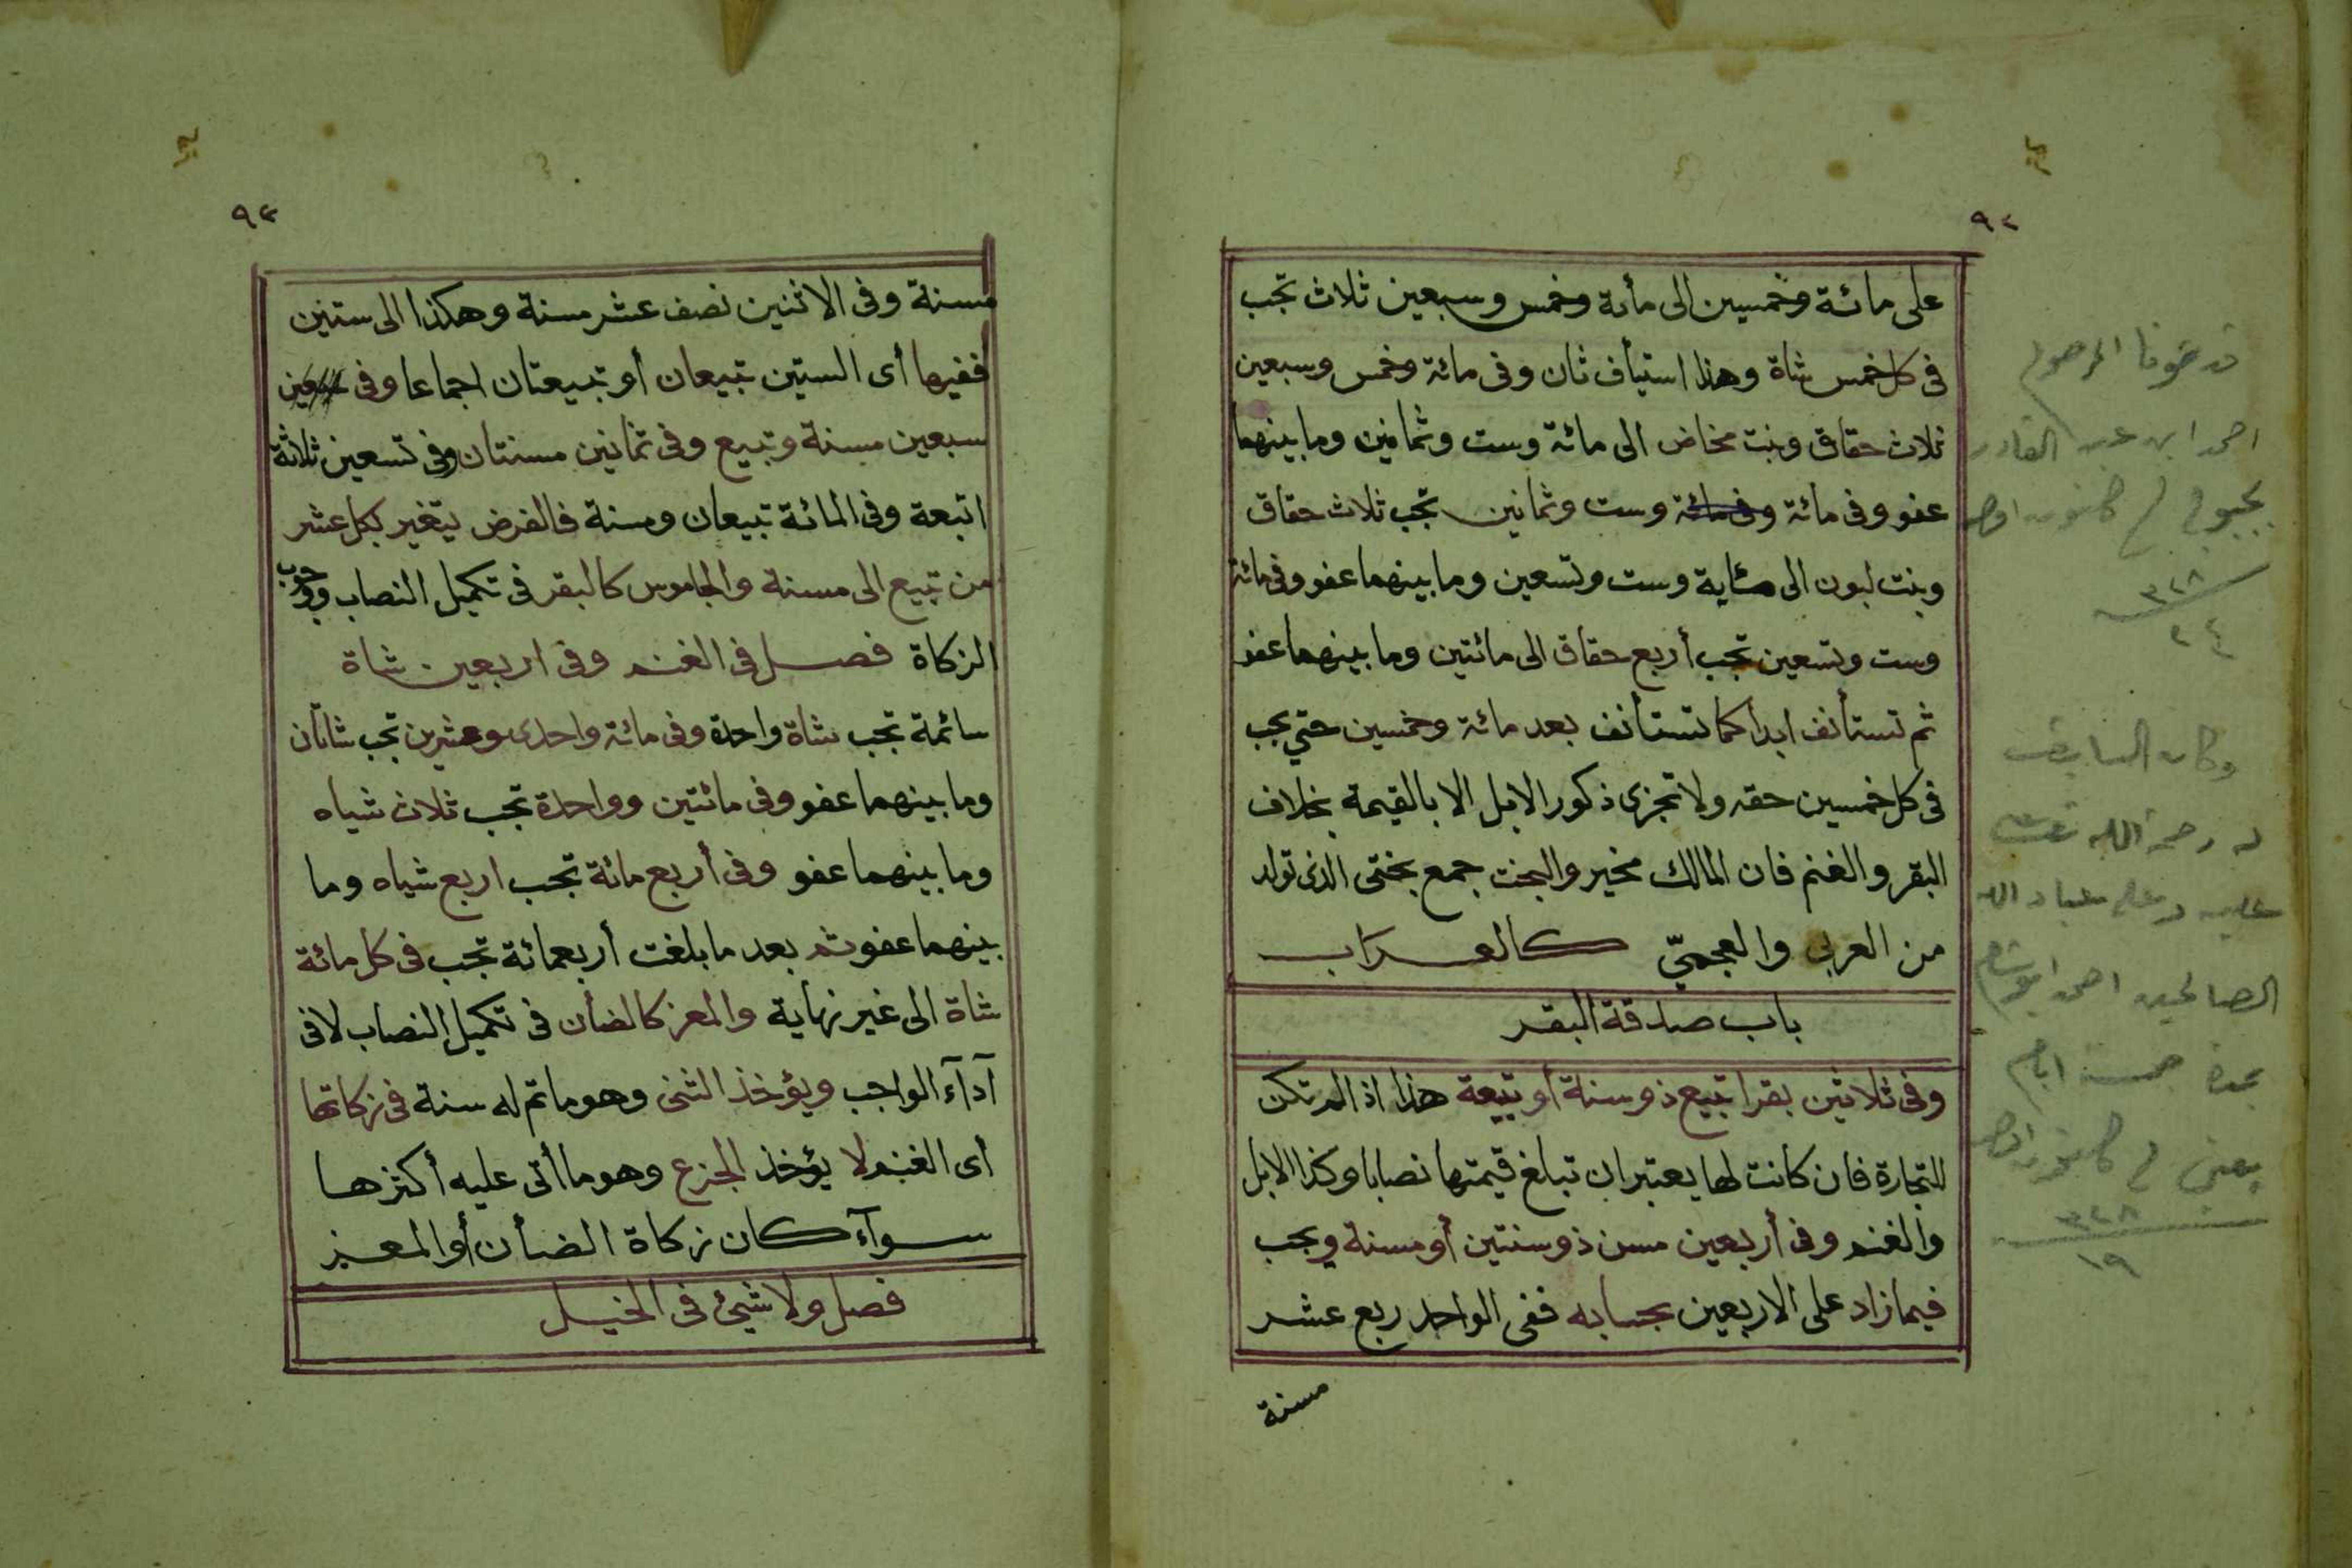 ٩٢
على مائة وخمسين الى مأة وخمس وسبعين ثلاث تجب
فى كل خمس شاة وهذا استيأف ثان وفى مائة وخمس وسبعين
ثلاث حقاق وبنت مخاض الى مائة وست وثمانين وما بينهما
عفو وفى مائة وفى مائة وست وثمانين تجب ثلاث حقاق
وبنت لبون الى مئاية وست وتسعين وما بينهما عفو وفى مائة
وست وتسعين تجب أربع حقاق الى مائتين وما بينهما عفو
ثم تستأنف ابدا كما تستأنف بعد مائة وخمسين حتي يجب
فى كل خمسين حقه ولا تجزى ذكور الابل الا بالقيمة بخلاف
البقر والغنم فان المالك مخير والبخت جمع بختى الذى تولد
من العربى والعجميّ كالعراب
باب صدقة البقر
وفى ثلاثين بقرا تبيع ذو سنة أو تبيعة هذا اذا لم تكن
للتجارة فان كانت لها يعتبر ان تبلغ قيمتها نصابا وكذا الابل
والغنم وفى أربعين مسن ذو سنتين أو مسنة ويجب
فيما زاد على الاربعين بحسابه ففى الواحد ربع عشر
مسنة
المرحوم
احمد ابن عبد القادر
٣٢٨
٢٤
وكان السابقت
له رحمة الله
عليه وعلى عباد الله
الصالحين احمد
بمدة خمسة ايام
يعنى
٣٢٨
١٩
٩٣
مسنة وفى الاثنين نصف عشر مسنة وهكذا الى ستين
ففيها أى الستين تبيعان أو تبيعتان اجماعا وفى
سبعين مسنة وتبيع وفى ثمانين مسنتان وفى تسعين ثلاثة
اتبعة وفى المائة تبيعان ومسنة فالفرض يتغير بكل عشر
من تبيع الى مسنة والجاموس كالبقر فى تكميل النصاب ووجوب
الزكاة فصل فى الغنم وفى اربعين شاة
سائمة تجب شاة واحدة وفى مائة واحدى وعشرين تجب شاتان
وما بينهما عفو وفى مائتين وواحدة تجب ثلاث شياه
وما بينهما عفو وفى أربع مائة تجب اربع شياه وما
بينهما عفو ثم بعد ما بلغت أربعمائة تجب فى كل مائة
شاة الى غير نهاية والمعز كالضأن فى تكميل النصاب لا فى
آدآء الواجب ويؤخذ الثنى وهو ما تم له سنة فى زكاتها
أى الغنم لا يؤخذ الجزع وهو ما أتى عليه أكثرها
سوآء كان زكاة الضأن أو المعز
فصل ولا شيئ فى الخيل